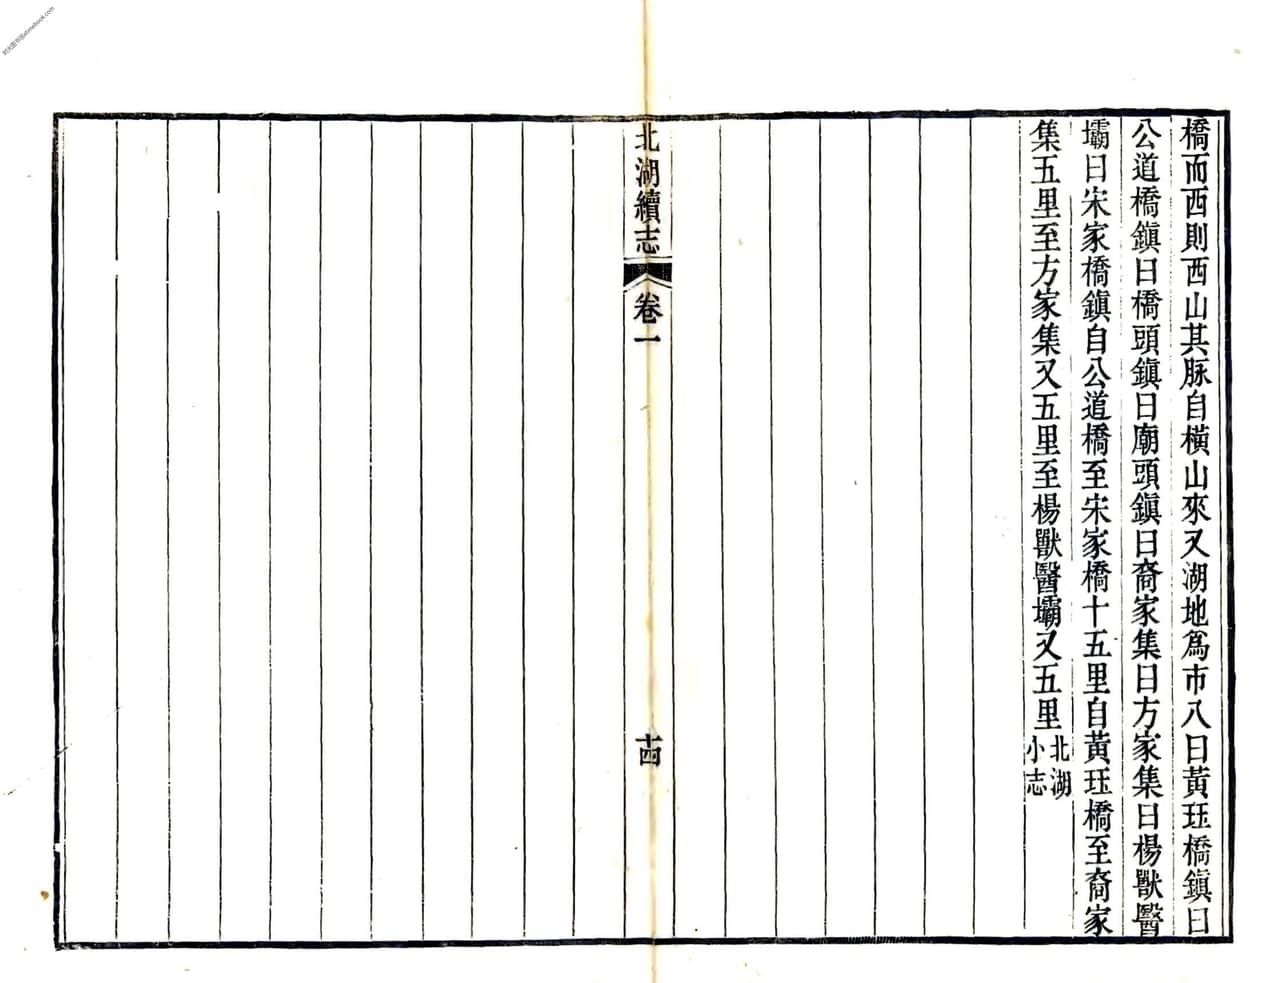 橋而西則西山其脈自橫山來又湖地爲市八曰黃珏橋鎭曰
公道橋鎭曰橋頭鎭曰廟頭鎭曰裔家集曰方家集曰楊獸醫
壩曰宋家橋鎭自公道橋至宋家橋十五里自黃珏橋至裔家
集五里至方家集又五里至楊獸醫壩又五里北湖
小志
北湖續志 卷一 十四